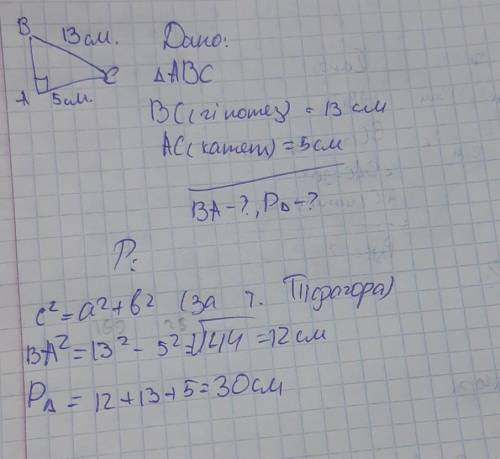 B 13см.
A 5см. C
Дано:
△ABC
BC(гіпотез) = 13 см
AC(катет) = 5см
BA-?, P△-?
Р:
c²=a²+b² (За т. Піфагора)
169 25
BA²=13²-5²=√144=12см
P△=12+13+5=30см